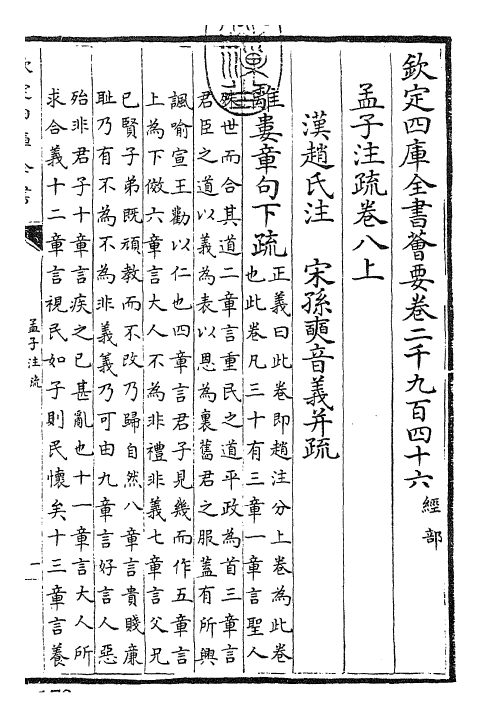 欽定四庫全書薈要卷二千九百四十六 經部
孟子注疏卷八上
漢趙氏注 宋孫奭音義并疏
離婁章句下疏
正義曰此卷即趙注分上卷為此卷
也此卷凡三十有三章一章言聖人
殊世而合其道二章言重民之道平政為首三章言
君臣之道以義為表以恩為裏舊君之服蓋有所興
諷喻宣王勸以仁也四章言君子見幾而作五章言
上為下傚六章言大人不為非禮非義七章言父兄
已賢子弟既頑教而不改乃歸自然八章言貴賤廉
恥乃有不為不為非義義乃可由九章言好言人惡
殆非君子十章言疾之已甚亂也十一章言大人所
求合義十二章言視民如子則民懷矣十三章言養
孟子注疏
一